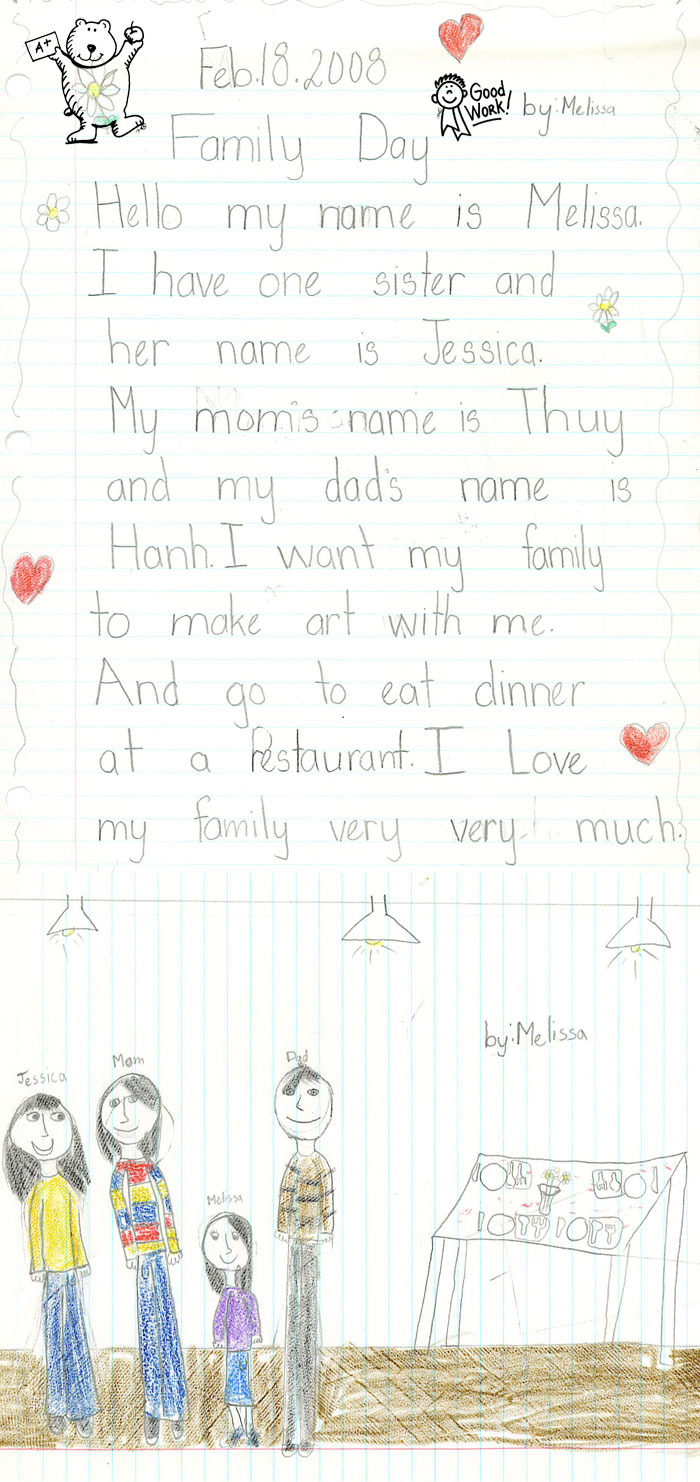 A+
Feb.18.2008
GOOD WORK!
by: Melissa
Family Day
Hello my name is Melissa.
I have one sister and
her name is Jessica.
My mom's name is Thuy
and my dad's name is
Hanh. I want my family
to make art with me.
And go to eat dinner
at a Restaurant. I Love
my family very very much.
by: Melissa
Jessica
Mom
Dad
Melissa